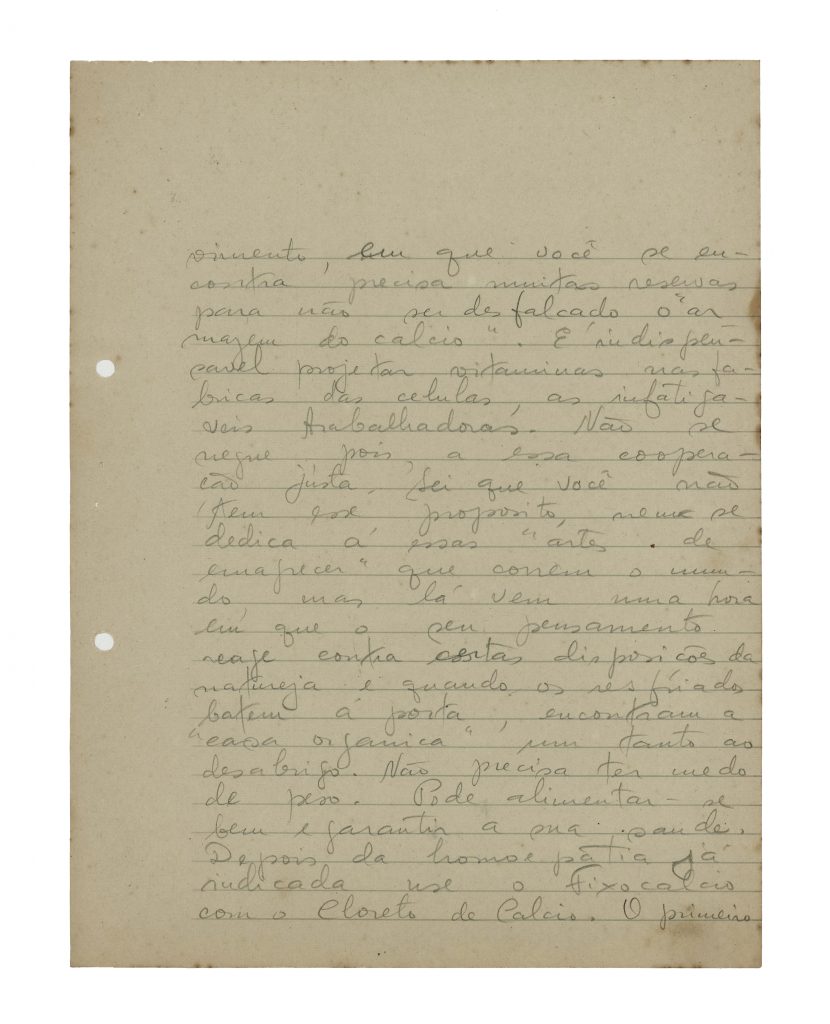 vimento, em que você se en-
contra, precisa muitas reservas
para não ser desfalcado o "ar
mazem do calcio". É indispen-
savel projetar vitaminas nas fa-
bricas das celulas, as infatiga-
veis trabalhadoras. Não se
negue pois, a essa coopera-
cão justa. Sei que você não
tem esse proposito, nem se
dedica á essas "artes de
emagrecer" que correm o mun-
do, mas lá vem uma hora
em que o seu pensamento
reage contra certas disposicões da
natureja e quando os resfriados
batem á porta, encontram a
"casa organica" um tanto ao
desabrigo. Não precisa ter medo
de peso. Pode alimentar-se
bem e garantir a sua saude.
Depois da homoepatia já
indicada use o Fixocalcio
com o Cloreto de Calcio. O primeiro